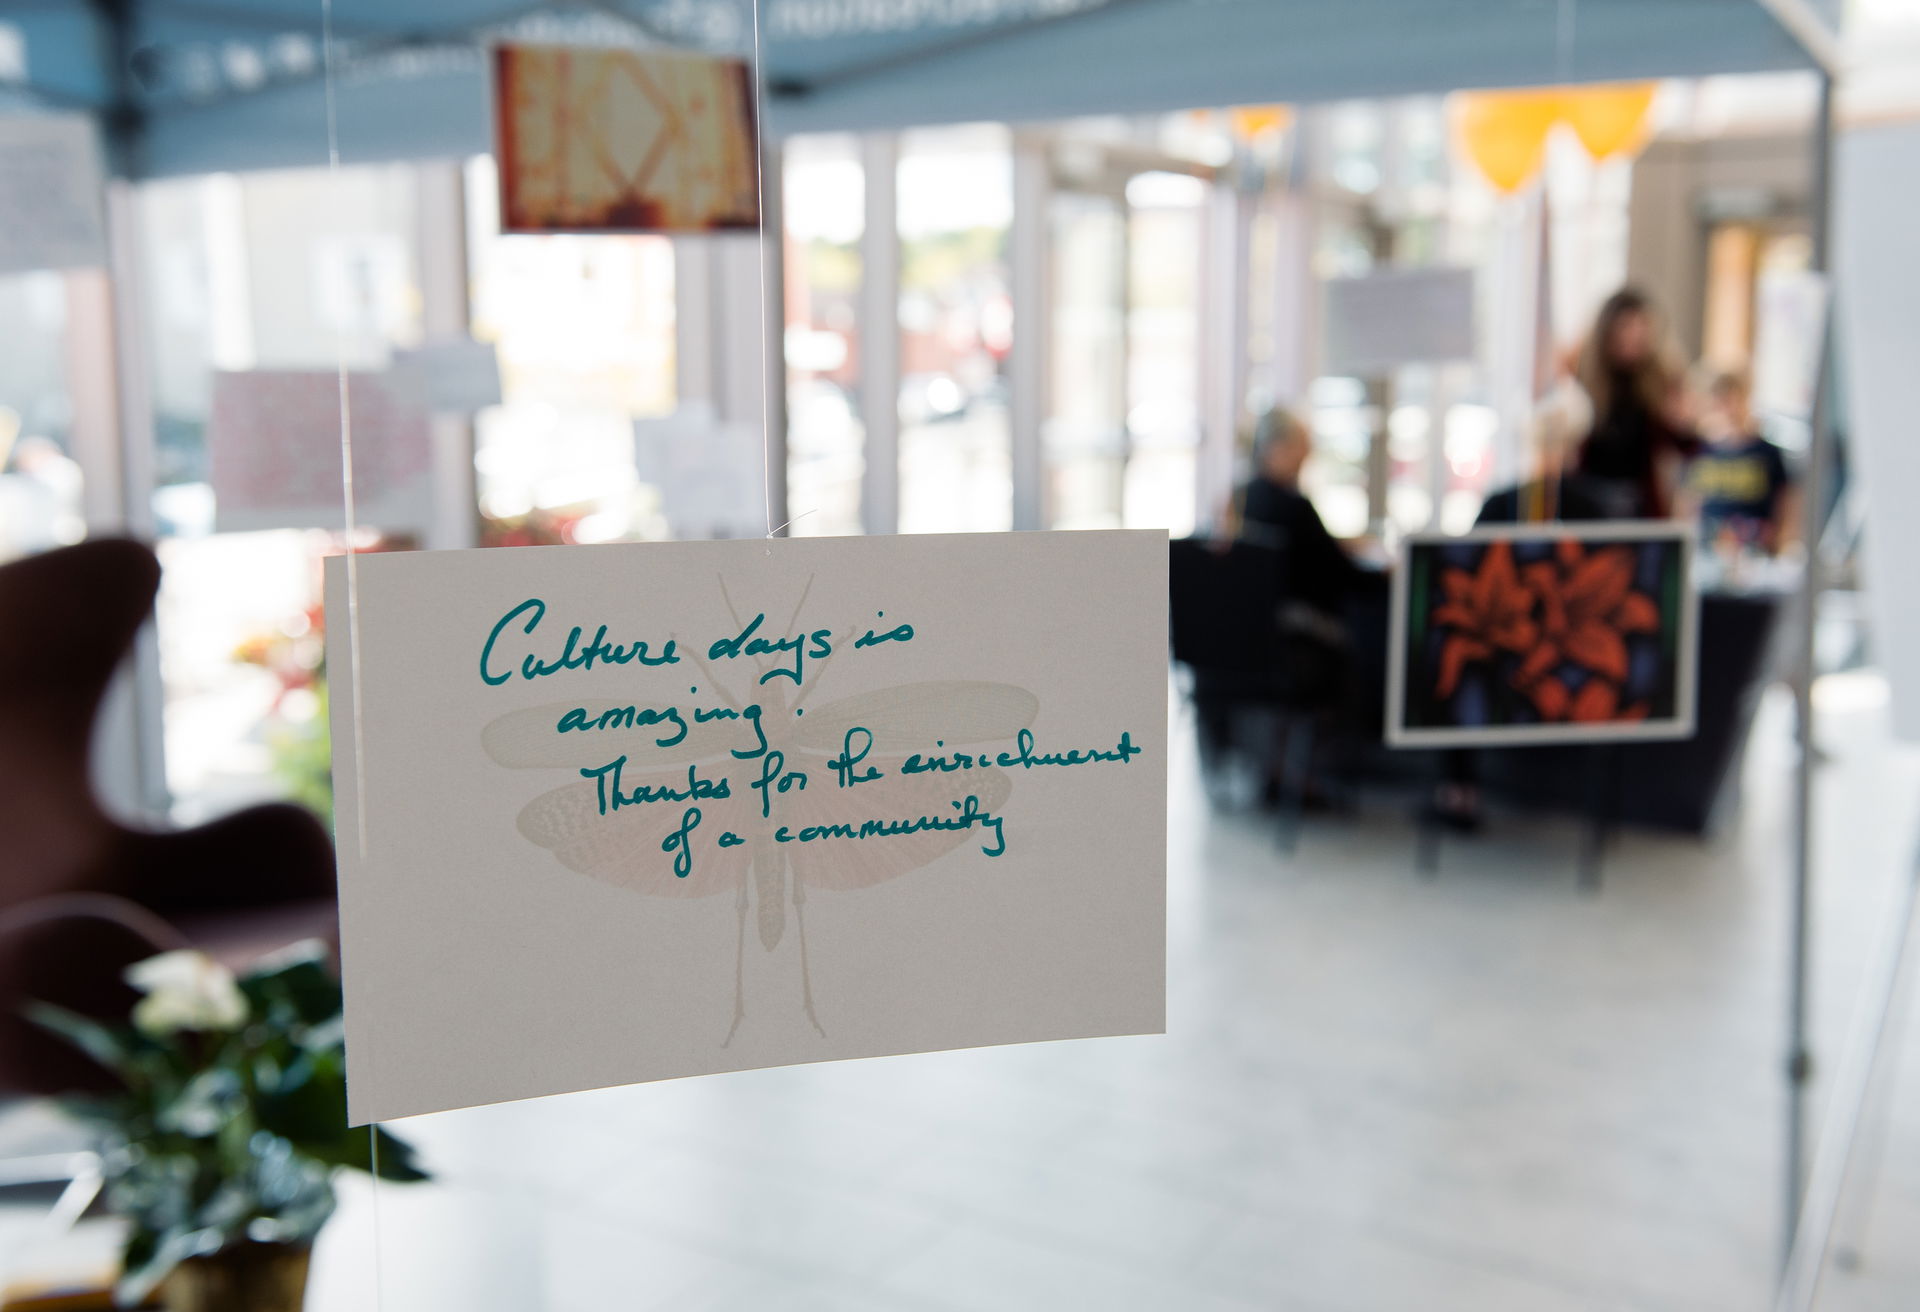 Culture days is
amazing.
Thanks for the enrichment
of a community